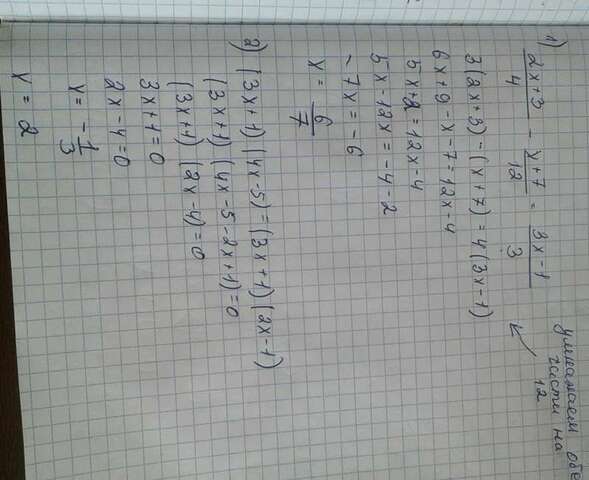 1) (2x+3)/4 - (x+7)/12 = (3x-1)/3
умножаем обе
части на
12
3(2x+3)-(x+7)=4(3x-1)
6x+9-x-7=12x-4
5x+2=12x-4
5x-12x=-4-2
-7x=-6
x = 6/7
2) (3x+1)(4x-5)=(3x+1)(2x-1)
(3x+1)(4x-5-2x+1)=0
(3x+1)(2x-4)=0
3x+1=0
2x-4=0
x = -1/3
x = 2